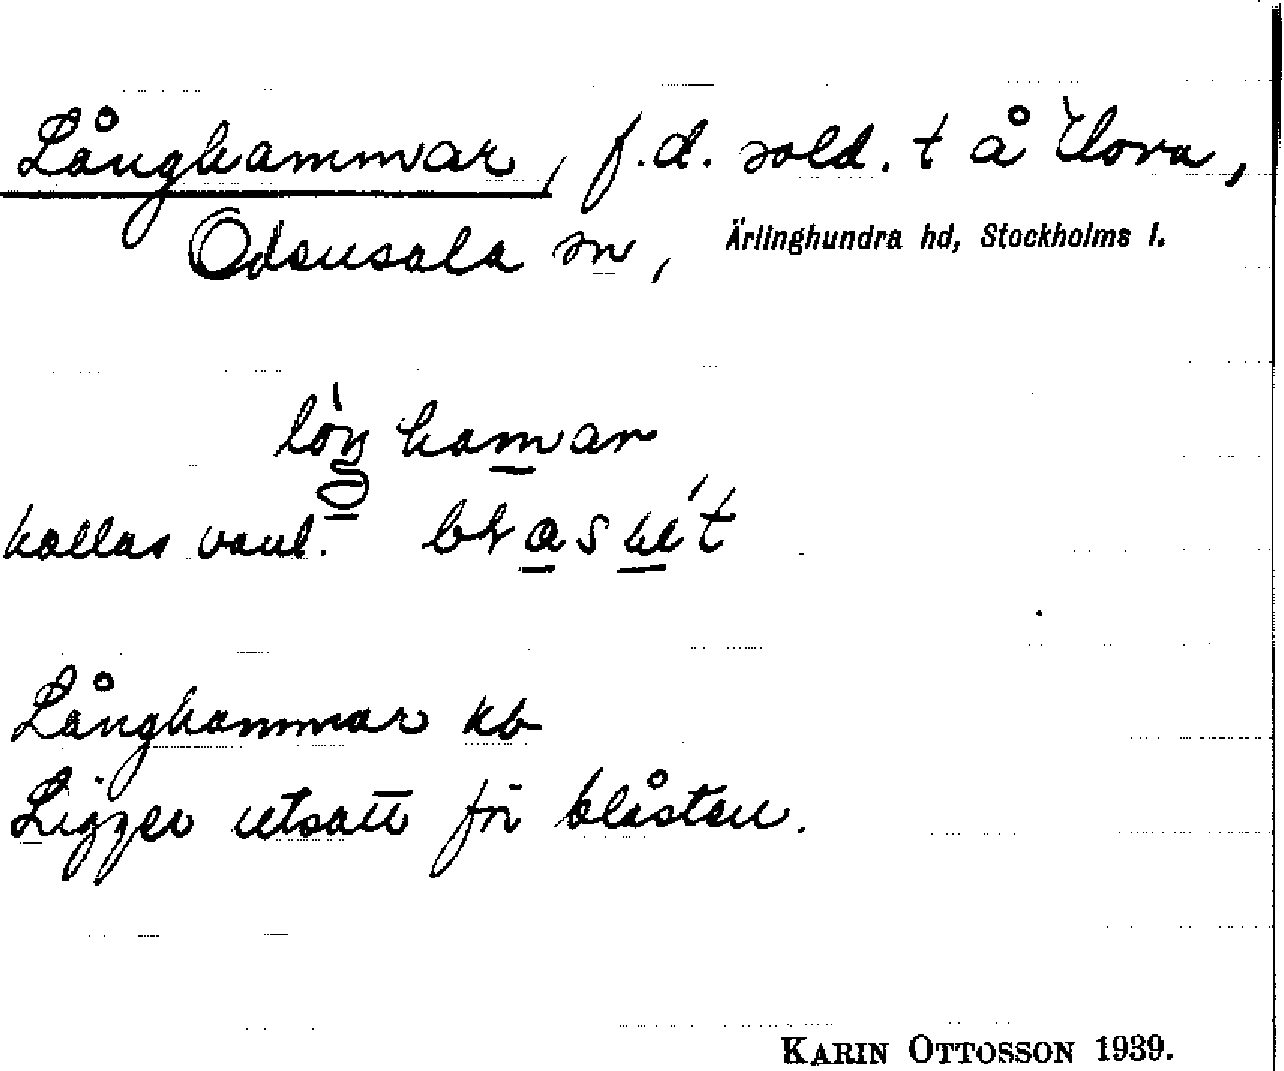 Långhammar, f.d. sold. t å
Odensala sn, Ärlinghundra hd, Stockholms l.
kallas vanl.
Långhammar kb
Ligger utsatt för blåsten.
KARIN OTTOSSON 1939.